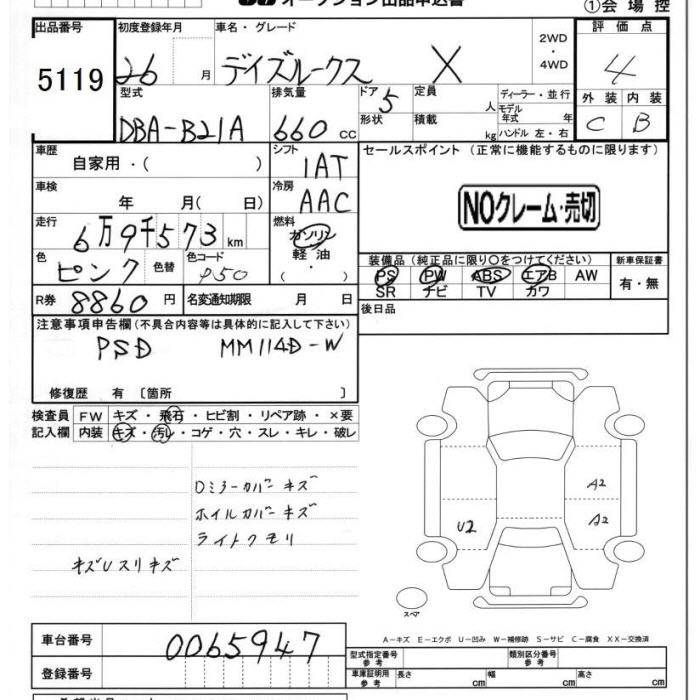 オークション出品申込書
①会場控
出品番号 初度登録年月 車名・グレード 2WD・4WD 評価点
5119 26 月 デイズルークス X 4
型式 排気量 ドア 定員 ディーラー・並行 外装 内装
DBA-B21A 660 cc 5 人 モデル年式 年 C B
形状 積載 kg ハンドル 左・右
車歴 シフト セールスポイント(正常に機能するものに限ります)
自家用・( ) 1AT
車検 冷房 NOクレーム・売切
年 月( 日) AAC
走行 燃料
6万9千573 km ガソリン
軽油
( ・ )
色 色替 色コード 装備品(純正品に限り○をつけてください) 新車保証書
ピンク P50 PS PW ABS エアB AW 有・無
SR ナビ TV カワ
R券 8860 円 名変通知期限 月 日 後日品
注意事項申告欄(不具合内容等は具体的に記入して下さい)
PSD MM114D-W
修復歴 有 〔箇所 〕
検査員 FW キズ・飛石・ヒビ割・リペア跡・×要
記入欄 内装 キズ・汚レ・コゲ・穴・スレ・キレ・破レ
Dミラーカバーキズ
ホイルカバーキズ A2
ライトクモリ U2 A2
キズUスリキズ
スペア
A-キズ E-エクボ U-凹み W-補修跡 S-サビ C-腐食 XX-交換済
車台番号 0065947
型式指定番号 参考 類別区分番号 参考
登録番号 車庫証明用 参考 長さ cm 幅 cm 高さ cm